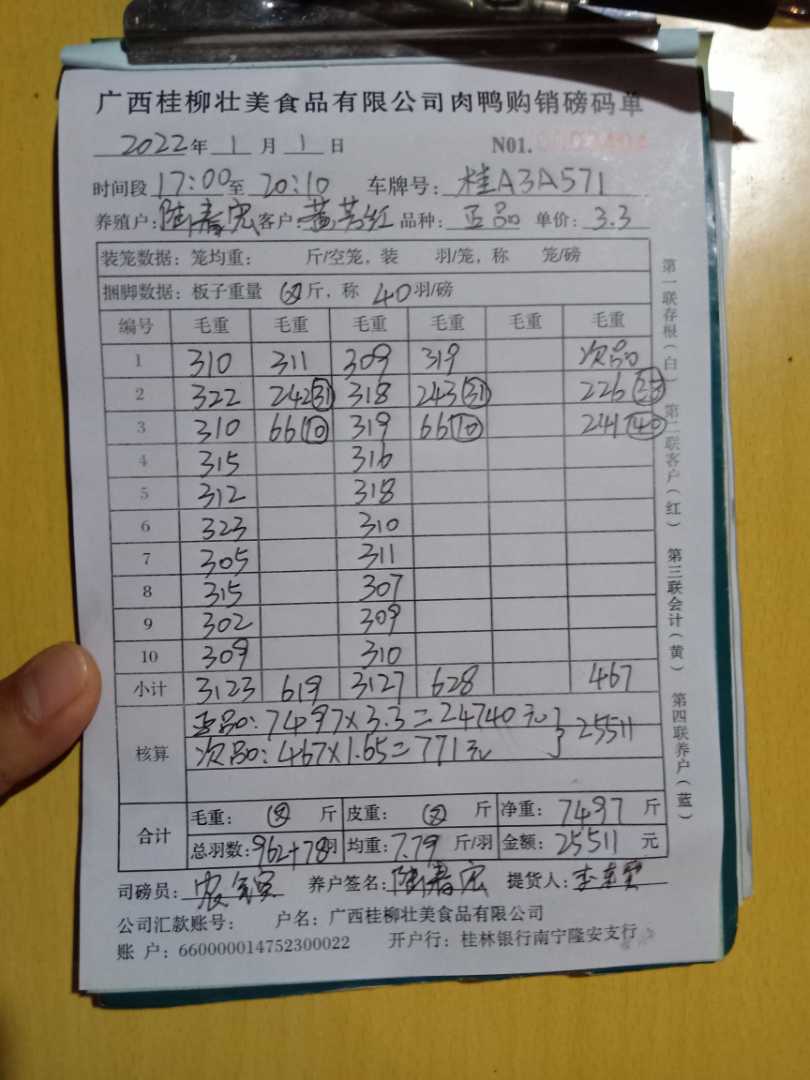 广西桂柳壮美食品有限公司肉鸭购销磅码单
2022年 1 月 1 日 N01.
时间段 17:00至 20:10 车牌号: 桂A3A571
养殖户: 陆春宏 客户: 红 品种: 正品 单价: 3.3
装笼数据: 笼均重: 斤/空笼, 装 羽/笼, 称 笼/磅
捆脚数据: 板子重量 斤, 称 40 羽/磅
编号 毛重 毛重 毛重 毛重 毛重 毛重
1 310 311 309 319 次品
2 322 242 31 318 243 31 226 38
3 310 66 10 319 66 10 241 40
4 315 316
5 312 318
6 323 310
7 305 311
8 315 307
9 302 309
10 309 310
小计 3123 619 3127 628 467
核算 正品: 7497×3.3=24740元 } 25511
次品: 467×1.65=771元
合计 毛重: 斤 皮重: 斤 净重: 7497 斤
总羽数: 962+78羽 均重: 7.79 斤/羽 金额: 25511 元
司磅员: 养户签名: 陆春宏 提货人: 李
公司汇款账号: 户名: 广西桂柳壮美食品有限公司
账 户: 660000014752300022 开户行: 桂林银行南宁隆安支行
第一联存根(白) 第二联客户(红) 第三联会计(黄) 第四联养户(蓝)